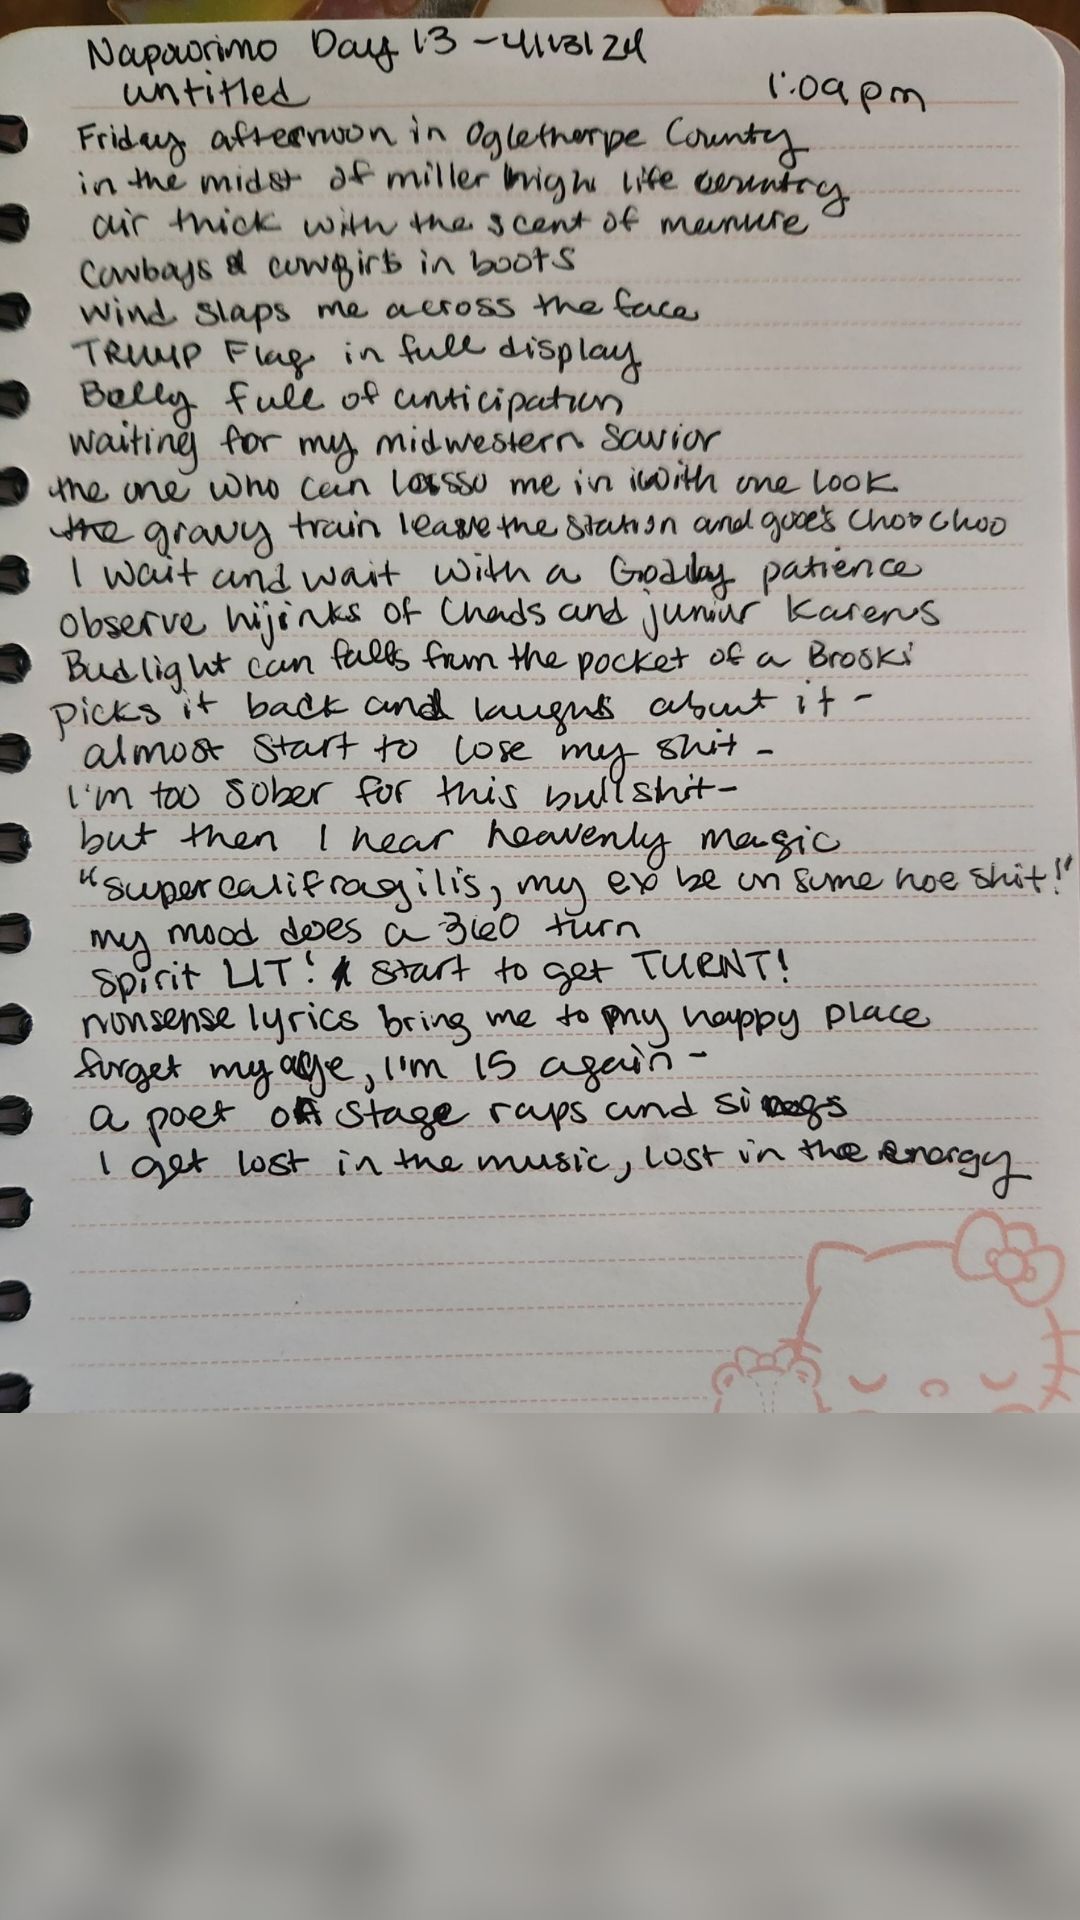 Napowrimo Day 13 - 4/13/24
untitled 1:09pm
Friday afternoon in Oglethorpe County
in the midst of miller high life country
air thick with the scent of manure
Cowboys & cowgirls in boots
Wind slaps me across the face
TRUMP Flag in full display
Belly full of anticipation
waiting for my midwestern savior
the one who can lasso me in with one look
the gravy train leave the station and goes choo choo
I wait and wait with a Godly patience
observe hijinks of Chads and junior Karens
Bud light can falls from the pocket of a Broski
picks it back and laughs about it -
almost start to lose my shit -
I'm too sober for this bullshit -
but then I hear heavenly magic
"supercalifragilis, my ex be on some hoe shit!"
my mood does a 360 turn
spirit LIT! I start to get TURNT!
nonsense lyrics bring me to my happy place
forget my age, I'm 15 again -
a poet on stage raps and sings
I get lost in the music, lost in the energy